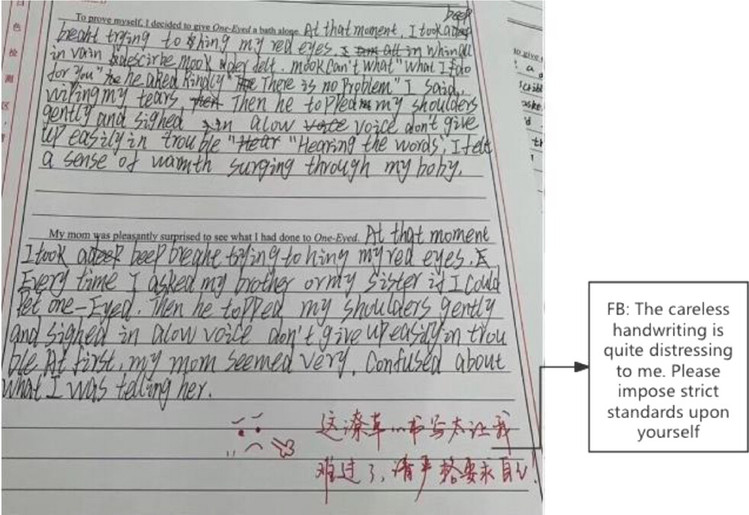 beep
To prove myself, I decided to give One-Eyed a bath alone. At that moment, I took a deep
breaht trying to hing my red eyes. I all in whin all
in vain descirbe mook der delt. mook can't what "what I do
for You" he aked kindly "There is no problem" I said,
wiping my tears then Then he topped my shoulders
gently and sighed in alow voice voice don't give
up easily in trouble "Hear "Hearing the words, I felt
a sense of warmth surging through my boby.
My mom was pleasantly surprised to see what I had done to One-Eyed. At that moment
I took adeep beep breaht trying to hing my red eyes.
Every time I asked my brother or my sister if I could
Pet one-Eyed. Then he topped my shoulders gently
and signed in alow voice don't give up easily in trou
ble At first, my mom seemed very. Confused about
what I was telling her.
这潦草的书写太让我
难过了,请严格要求自己!
FB: The careless
handwriting is
quite distressing
to me. Please
impose strict
standards upon
yourself